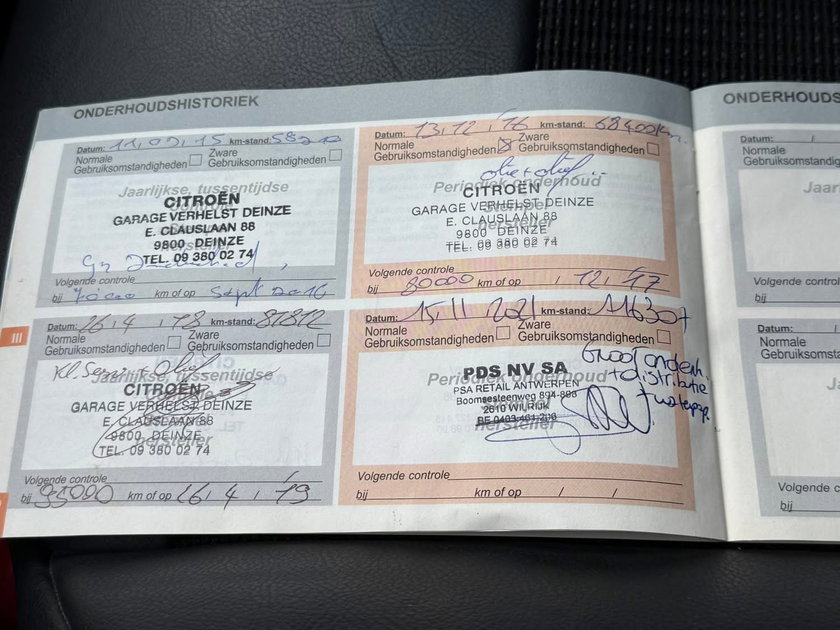 ONDERHOUDSHISTORIEK
Datum: 11, 09, 15 km-stand: 58
Normale Gebruiksomstandigheden
Zware Gebruiksomstandigheden
Jaarlijkse, tussentijdse
CITROËN
GARAGE VERHELST DEINZE
E. CLAUSLAAN 88
9800 DEINZE
TEL. 09 380 02 74
Gr
Volgende controle
bij 70000 km of op Sept 2016
Datum: 13, 12, 16 km-stand: 68400km
Normale Gebruiksomstandigheden
Zware Gebruiksomstandigheden
Periodiek onderhoud
hersteller
CITROËN
GARAGE VERHELST DEINZE
E. CLAUSLAAN 88
9800 DEINZE
TEL. 09 380 02 74
Volgende controle
bij 80000 km of op / 12, 17
Datum: 26, 4, 18 km-stand: 87812
Normale Gebruiksomstandigheden
Zware Gebruiksomstandigheden
Jaarlijkse, tussentijdse
CITROËN
GARAGE VERHELST DEINZE
E. CLAUSLAAN 88
9800 DEINZE
TEL. 09 380 02 74
Volgende controle
bij 95000 km of op 26, 4, 19
Datum: 15, 11, 2021 km-stand: 116307
Normale Gebruiksomstandigheden
Zware Gebruiksomstandigheden
Periodiek onderhoud
hersteller
PDS NV SA
PSA RETAIL ANTWERPEN
Boomsesteenweg 894-898
2610 WILRIJK
BE 0403.461.206
Groot onderh.
+ distributie
+ waterpp
Volgende controle
bij km of op / /
III
ONDERHOUDS
Datum: /
Normale
Gebruiksomstandig
Jaa
Volgende control
bij
Datum: /
Normale
Gebruiksomstandi
Ja
Volgende co
bij